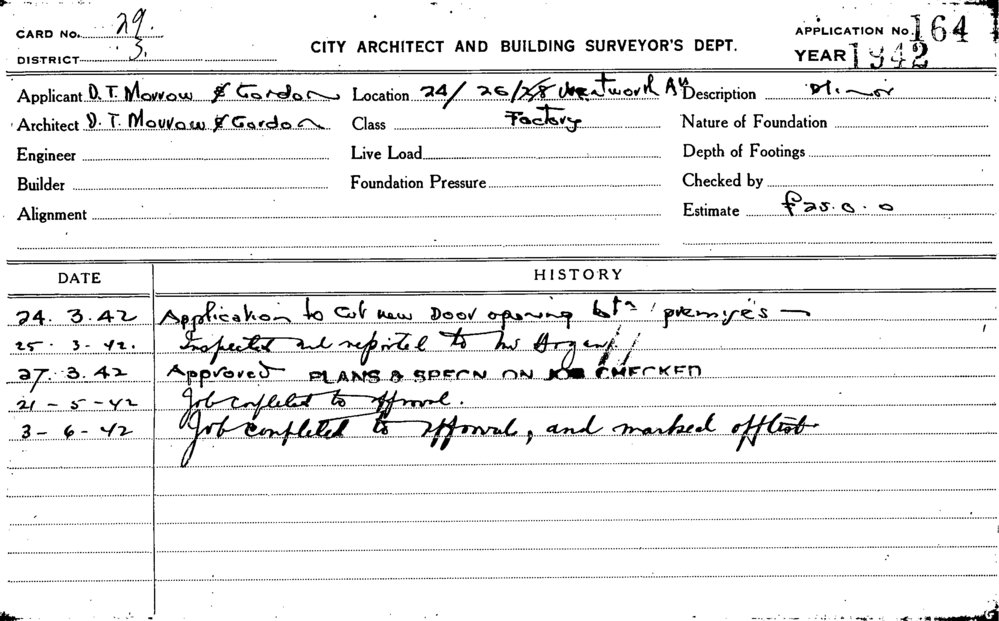 CARD No. 29.
DISTRICT 3.
CITY ARCHITECT AND BUILDING SURVEYOR'S DEPT.
APPLICATION No 164
YEAR 1942
Applicant D. T. Morrow & Gordon Location 24/26/28 Wentworth Av Description Minor
Architect D. T. Morrow & Gordon Class Factory Nature of Foundation
Engineer Live Load Depth of Footings
Builder Foundation Pressure Checked by
Alignment Estimate £25.0.0
DATE HISTORY
24. 3. 42 Application to cut new Door opening btn premises —
25. 3-42. Inspected and reported to Mr
27. 3. 42 Approved PLANS & SPECN ON JOB CHECKED
21-5-42 Job completed to approval.
3-6-42 Job completed to approval, and marked off